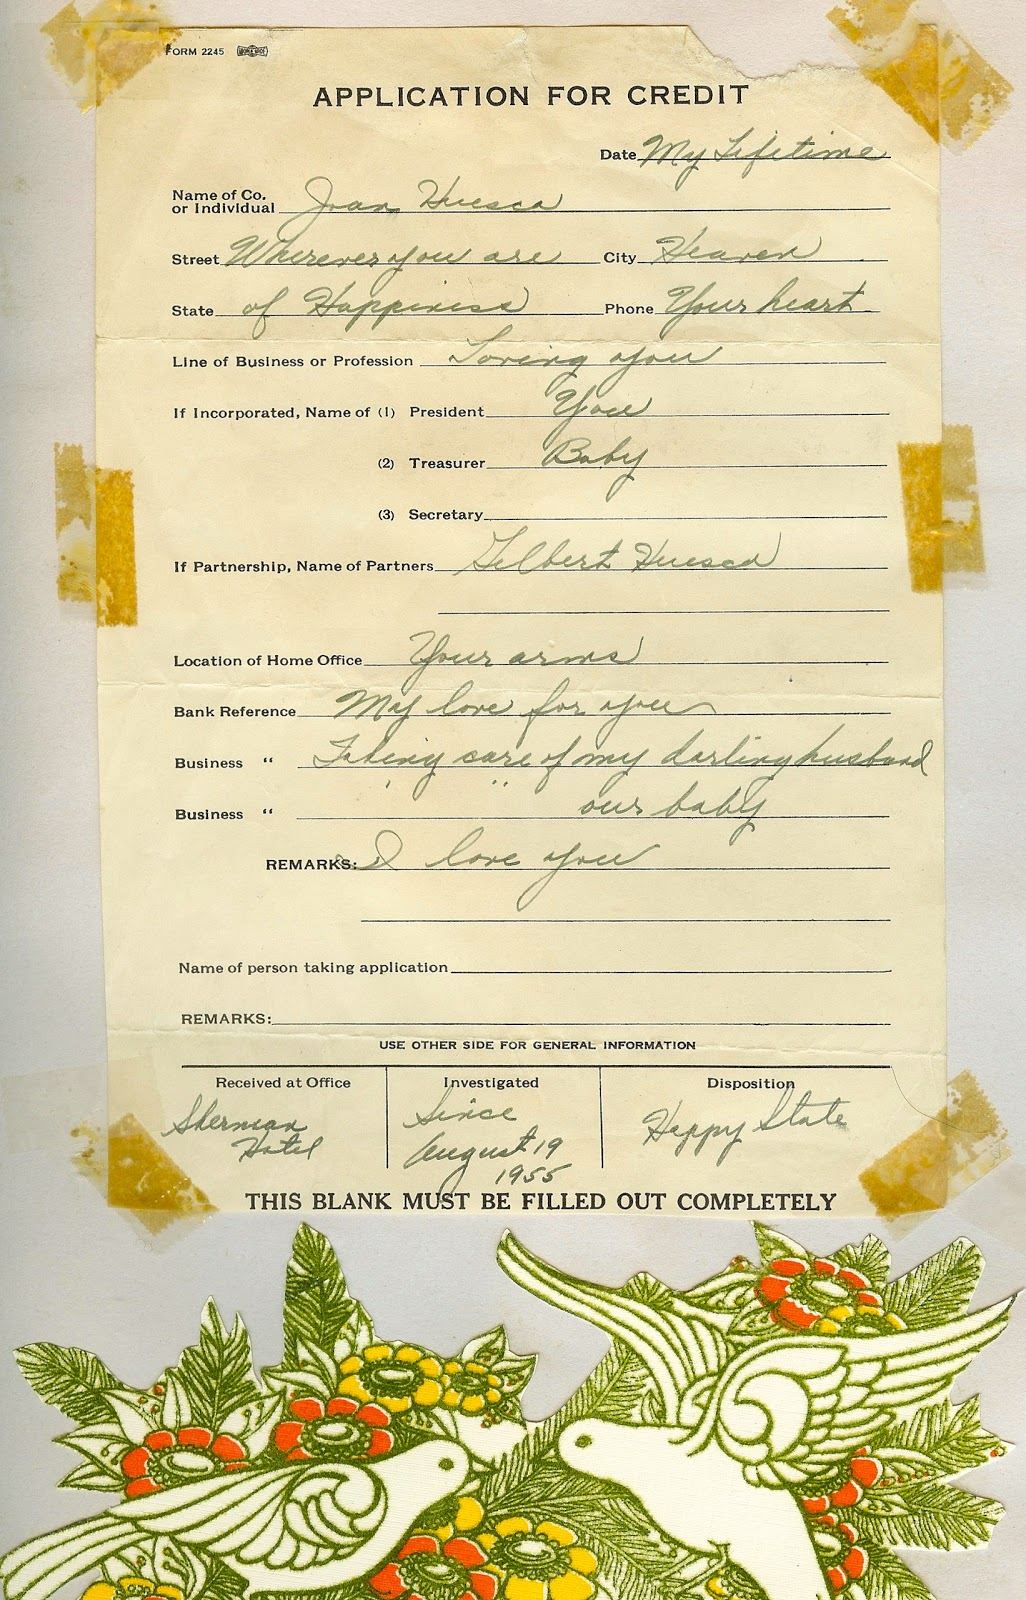 FORM 2245
APPLICATION FOR CREDIT
Date My Lifetime
Name of Co.
or Individual Joan Huesca
Street Wherever you are City Heaven
State of Happiness Phone Your heart
Line of Business or Profession Loving you
If Incorporated, Name of (1) President You
(2) Treasurer Baby
(3) Secretary
If Partnership, Name of Partners Gilbert Huesca
Location of Home Office Your arms
Bank Reference My love for you
Business " Taking care of my darling husband
Business " " " our baby
REMARKS: I love you
Name of person taking application
REMARKS:
USE OTHER SIDE FOR GENERAL INFORMATION
Received at Office Investigated Disposition
Sherman Hotel Since August 19 1955 Happy State
THIS BLANK MUST BE FILLED OUT COMPLETELY